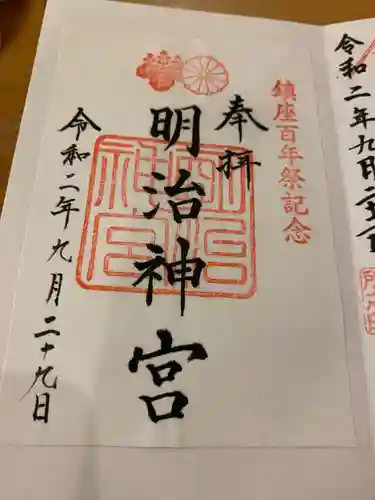 令和二年九月
鎮座百年祭記念
奉拝
明治神宮
明治神宮
令和二年九月二十九日